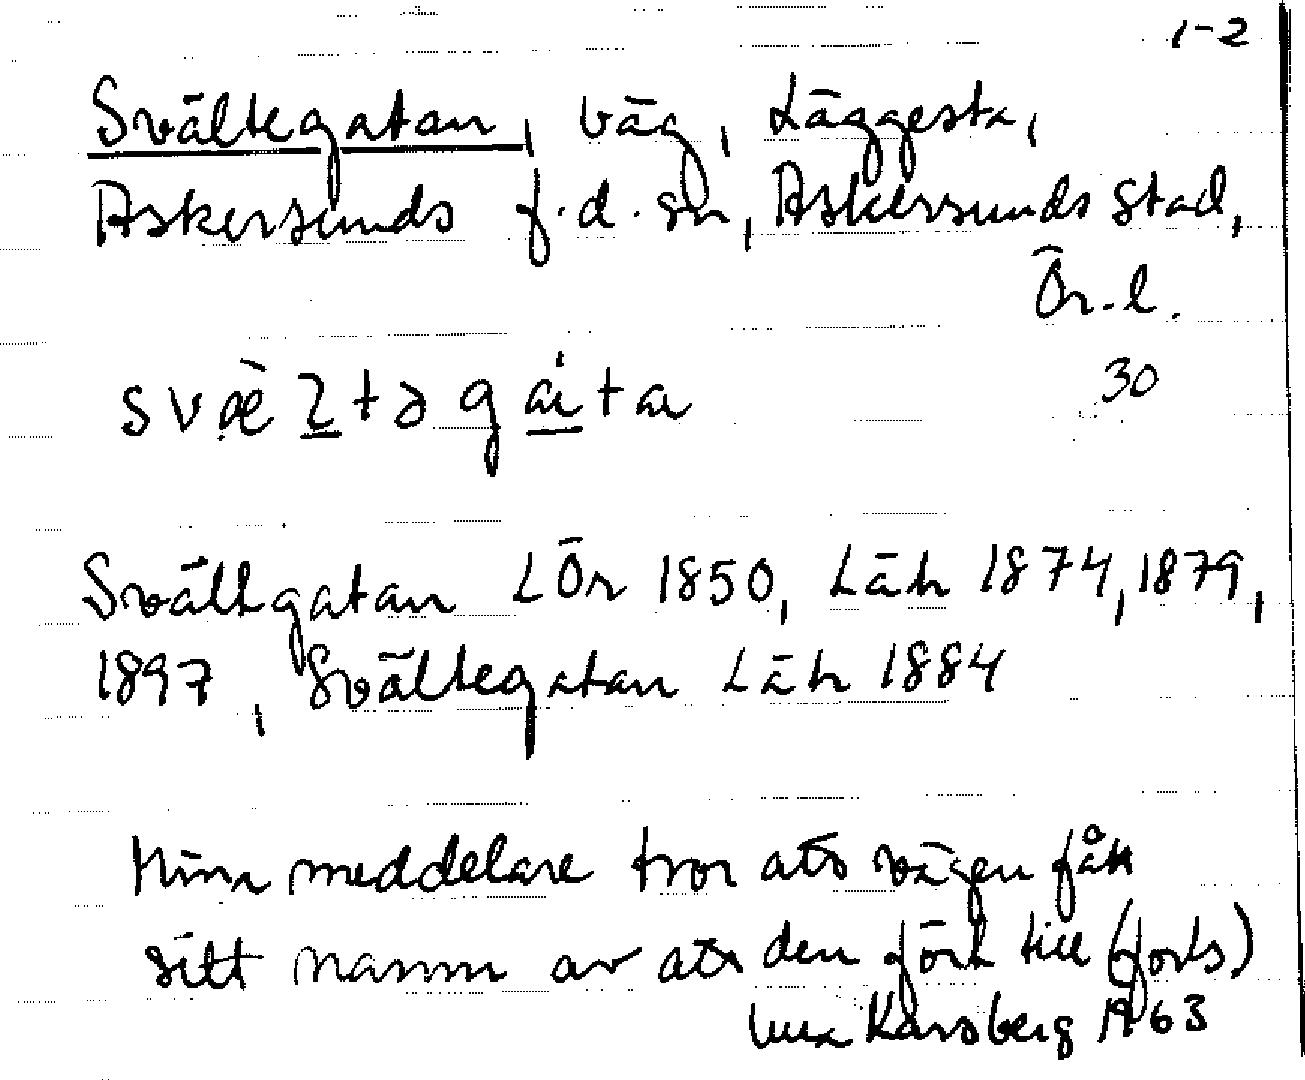 1-2
Svältegatan, väg, Läggesta,
Askersunds f.d. sn, Askersunds stad,
Ör. l.
30
Svältgatan LÖr 1850, Läh 1874, 1879,
1897, Svältegatan Läh 1884
Mina meddelare tror att vägen fått
sitt namn av att den fört till (forts)
Karsberg A 63